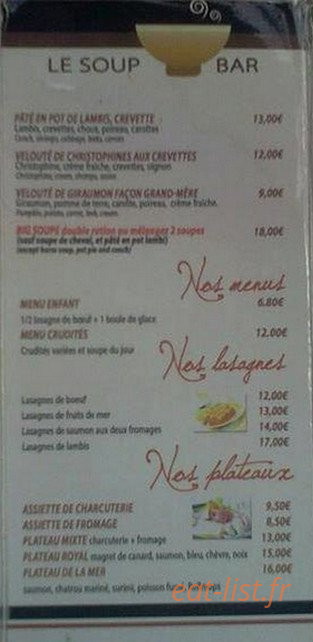 LE SOUP BAR
PÂTÉ EN POT DE LAMBIS, CREVETTE 13,00€
Lambis, crevettes, choux, poireau, carottes
VELOUTÉ DE CHRISTOPHINES AUX CREVETTES 12,00€
Christophine, crème fraîche, crevettes, oignon
Christophine, cream, shrimps, onion
VELOUTÉ DE GIRAUMON FAÇON GRAND-MÈRE 9,00€
Giraumon, pomme de terre, carotte, poireau, crème fraîche.
BIG SOUPE double ration ou mélangez 2 soupes 18,00€
(sauf soupe de cheval, et pâté en pot lambi)
(except horse soup, pot pie and conch)
Nos menus
MENU ENFANT 6.80€
1/2 lasagne de bœuf + 1 boule de glace
MENU CRUDITÉS 12.00€
Crudités variées et soupe du jour
Nos lasagnes
Lasagnes de boeuf 12,00€
Lasagnes de fruits de mer 13,00€
Lasagnes de saumon aux deux fromages 14,00€
Lasagnes de lambis 17,00€
Nos plateaux
ASSIETTE DE CHARCUTERIE 9,50€
ASSIETTE DE FROMAGE 8,50€
PLATEAU MIXTE charcuterie + fromage 13,00€
PLATEAU ROYAL magret de canard, saumon, bleu, chèvre, noix 15,00€
PLATEAU DE LA MER 16,00€
saumon, chatrou mariné, surimi, poisson fumé,
eat-list.fr